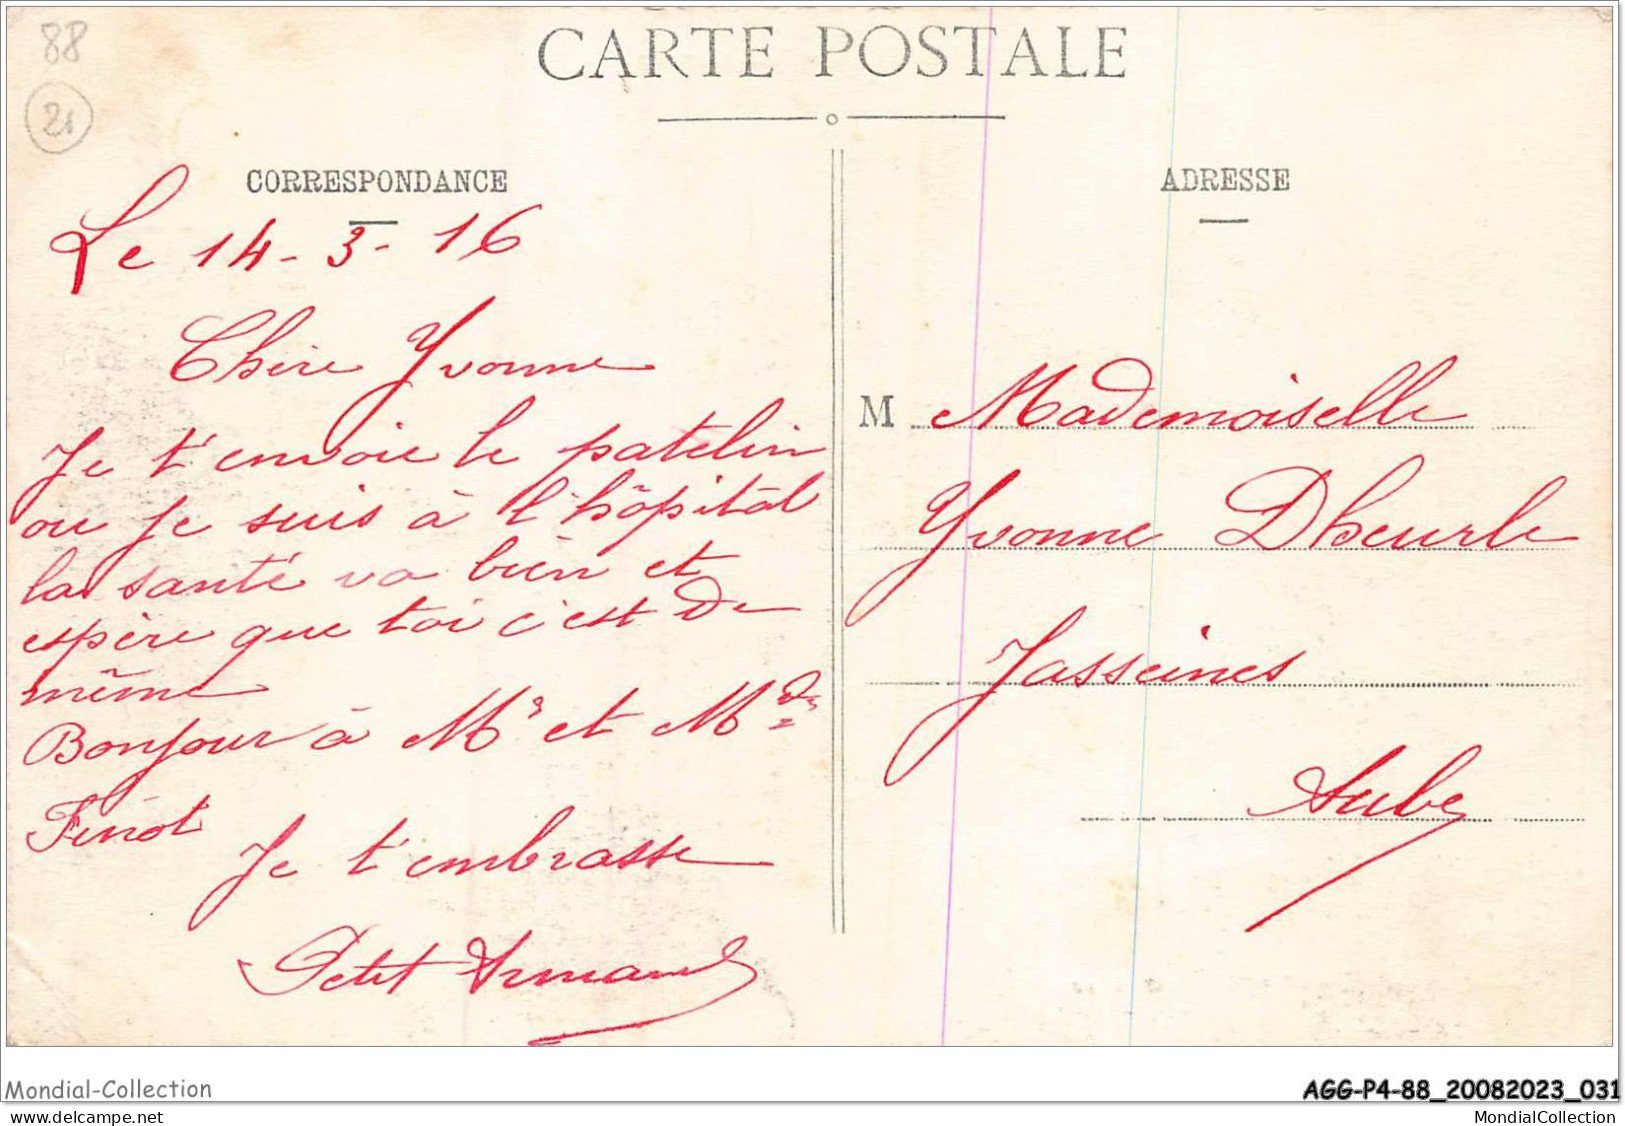 88
21
CARTE POSTALE
CORRESPONDANCE
Le 14-3-16
Chère Yvonne
Je t'envoie le patelin
ou je suis à l'hôpital
la santé va bien et
espère que toi c'est de
même
Bonjour à Mr et Mde
Finot
Je t'embrasse
Petit Armand
ADRESSE
M Mademoiselle
Yvonne Dheurle
Jasseines
Aube
Mondial-Collection
AGG-P4-88_20082023_031
https://www.delcampe.net
MondialCollection